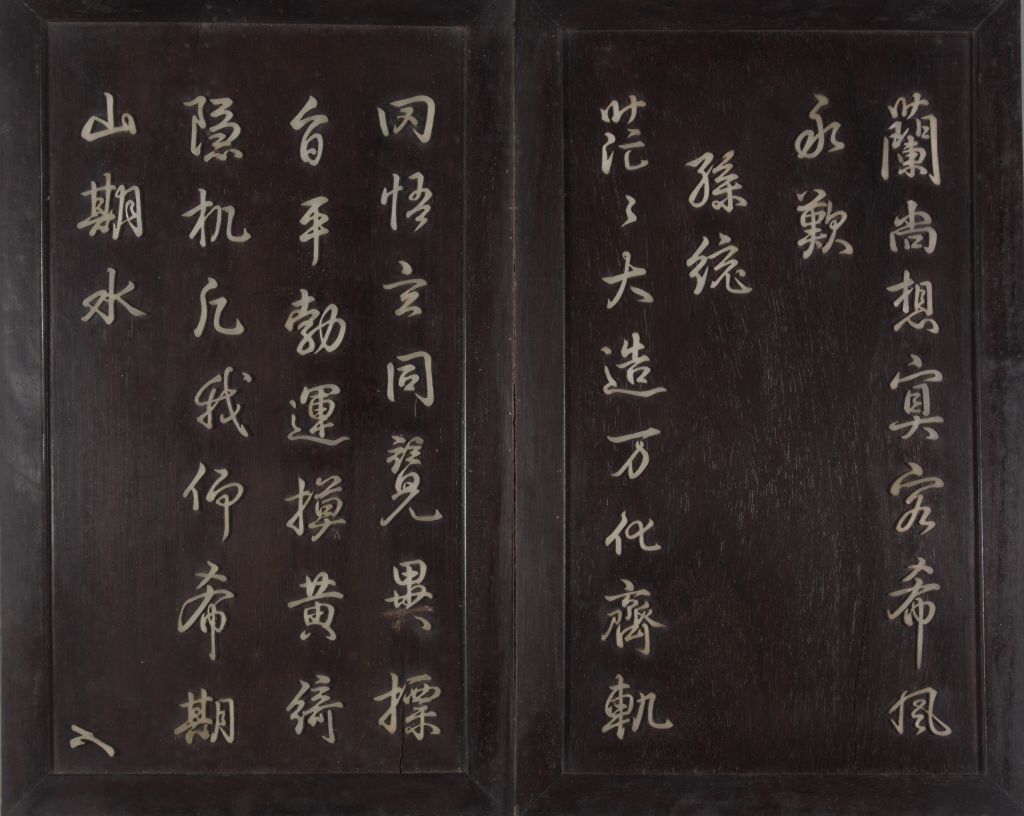 蘭尚想冥客希風
永歎
孫統
茫〻大造万化齊軌
罔悟玄同競異摽
旨平勃運摸黃綺
隐机凡我仰希期
山期水